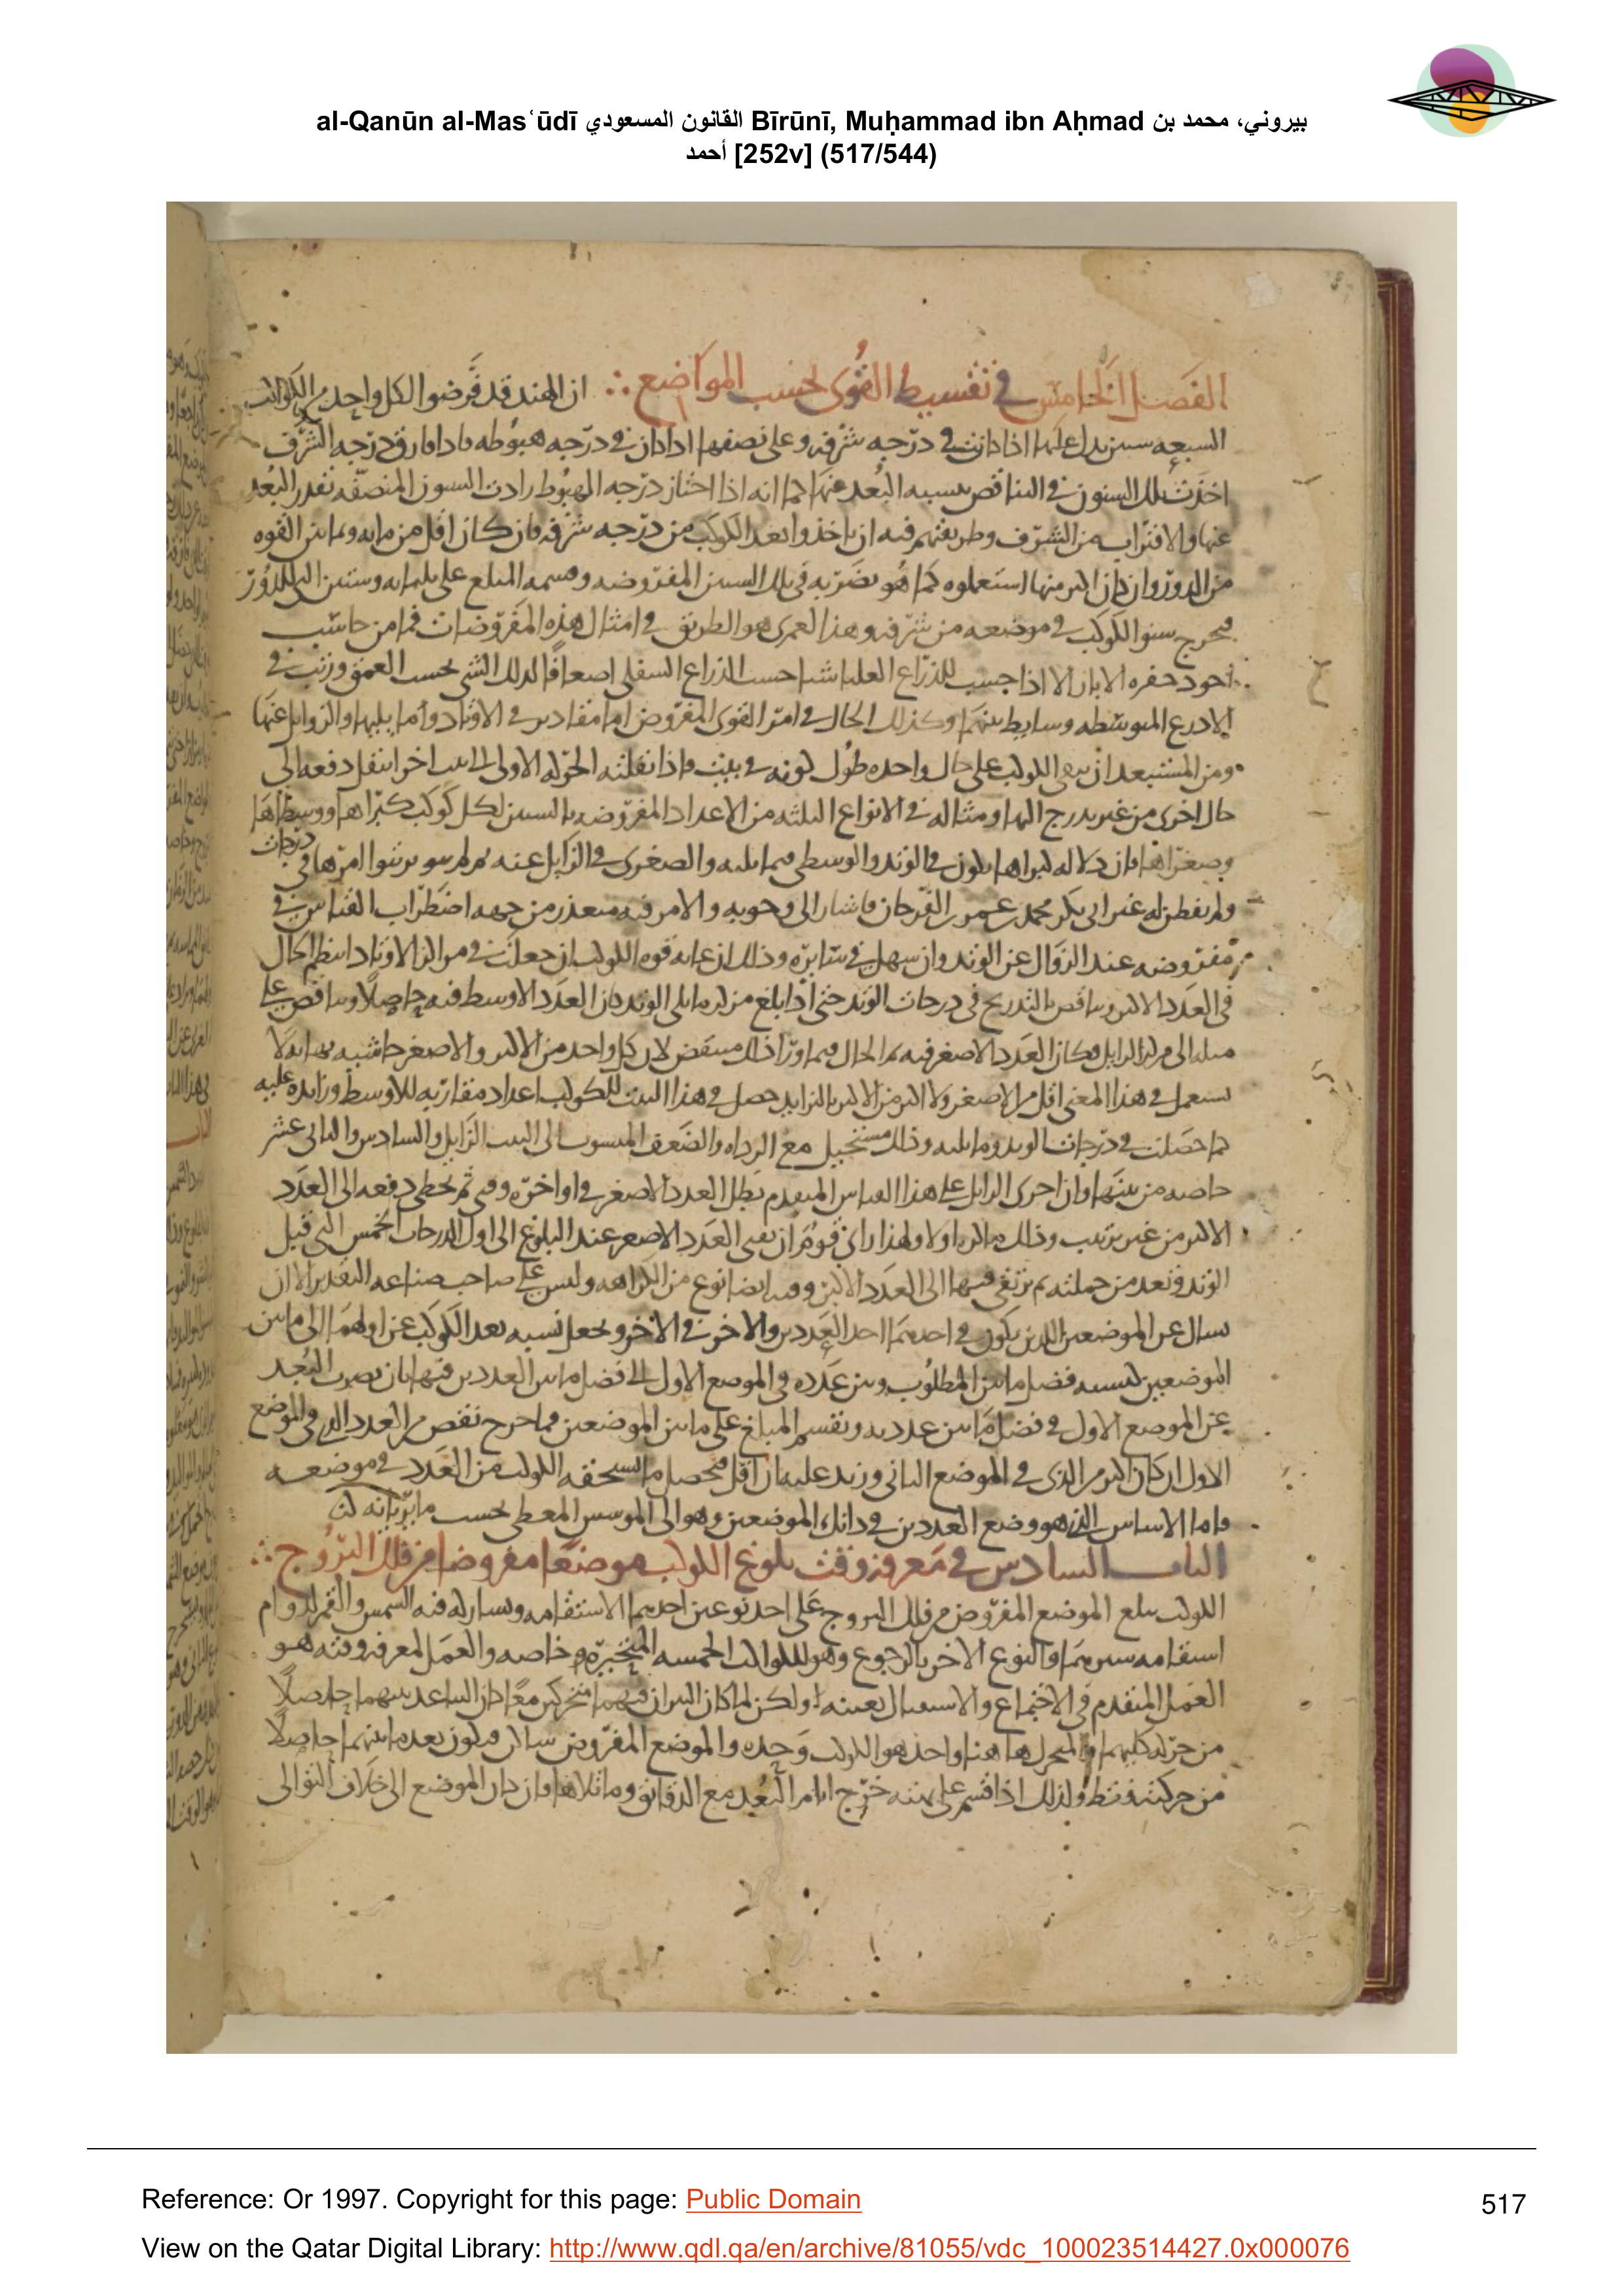 al-Qanūn al-Masʻūdī القانون المسعودي Bīrūnī, Muḥammad ibn Aḥmad بيروني، محمد بن
أحمد [252v] (517/544)
الفصل الخامس في تقسيط القوى بحسب المواضع ∴ ان الهند قد فرضوا لكل واحد من الكواكب
السبعه سنين يدل عليها اذا كانت في درجه شرفه وعلى نصفها اذا كان في درجه هبوطه فاذا فارق درجه الشرف
اخذت تلك السنون في التناقص بنسبه البعد عنها كما انه اذا اجتاز درجه الهبوط زادت السنون المنصفه بقدر البعد
عنها والاقتراب من الشرف وطريقتهم فيه ان ياخذوا بعد الكوكب من درجه شرفه فان كان اقل من مايه وثمانين القوه
من الدور وان كان اكثر منها استعملوه كما هو بضربه في تلك السنين المفروضه وقسمه المبلغ على ثلثمايه وستين التي للدور
فيخرج سنو الكوكب في موضعه من شرفه وهذا لعمرى هو الطريق في امثال هذه المفروضات فما من حاسب
الاذرع المتوسطه وسايط بينهما وكذلك الحال في امر القوى المفروض لها مقادير في الاوتاد وما يليها والزوايل عنها
ومن المستبعد ان يبقى الكوكب على حال واحده طول كونه في بيت فاذا نقلته الحركه الاولى الى بيت اخر انتقل دفعه الى
حال اخرى من غير تدرج اليها ومثاله في الانواع الثلثه من الاعداد المفروضه بالسنين لكل كوكب كبراها ووسطاها
وصغراها فان دلاله كبراها يكون في الوتد والوسطى فيما يليه والصغرى في الزايل عنه
درجات
ولم يفطن له غير ابى بكر محمد بن عمر بن الفرخان فاشار الى وجوبه والامر فيه متعذر من جهه اضطراب القياس في
مفروضه عند الزوال عن الوتد وان سهل في سايره وذلك ان غايه قوه الكوكب ان جعلت في مراكز الاوتاد انتظم الحال
في العدد الاكبر وتناقص بالتدريج في درجات الوتد حتى اذا بلغ مركز ما يلي الوتد كان العدد الاوسط فيه حاصلا وتناقص على
مثله الى مركز الزايل فكان العدد الاصغر فيه
يستعمل في هذا المعنى اقل من الاصغر ولا اكثر من الاكبر بالتزايد حصل في هذا البيت للكوكب اعداد مقاربه للاوسط وزايده عليه
كما حصلت في درجات الوتد وما يليه وذلك مستحيل مع الرداه والضعف المنسوب الى البيت الزايل والسادس والثاني عشر
خاصه من بينها وان اجرى الزايل على هذا القياس المتقدم بطل العدد الاصغر في اواخره وفي ثم يخطى دفعه الى العدد
الاكبر من غير ترتيب وذلك ولهذا راى قوم ان يفنى العدد الاصغر عند البلوغ الى اول الدرجات الخمس التي قبل
الوتد وتعد من جملته ثم يرتقى فيها الى العدد الاكبر وفيه ايضا نوع من الكراهه وليس على صاحب صناعه التقدير الا ان
يسال عن الموضعين اللذين يكون في احدهما احد العددين والاخر في الاخر ويجعل نسبه بعد الكوكب عن اولهما الى ما بين
الموضعين كنسبه فضل ما بين المطلوب وبين عدده في الموضع الاول الى فضل ما بين العددين فيها بان يضرب البعد
عن الموضع الاول في فضل ما بين عدديه ونقسم المبلغ على ما بين الموضعين فما خرج نقص من العدد الذي في الموضع
الاول ان كان اكثر من الذي في الموضع الثاني وزيد عليه ان اقل فيحصل ما يستحقه الكوكب من العدد في موضعه
فاما الاساس الذي هو وضع العددين في ذانك الموضعين وهو الى الموسس المعطى بحسب
الباب السادس في معرفه وقت بلوغ الكوكب موضعا مفروضا من فلك البروج ∴
الكوكب يبلغ الموضع المفروض من فلك البروج على احد نوعين احدهما الاستقامه ويشاركه فيه الشمس والقمر لدوام
استقامه سيرهما والنوع الاخر بالرجوع وهو للكواكب الخمسه المتحيره خاصه والعمل لمعرفه وقته هو
العمل المتقدم في الاجتماع والاستقبال بعينه ولكن لما كان النيران فيهما متحركين معا كان التباعد بينهما حاصلا
من حركه كليهما والمتحرك هاهنا واحد هو الكوكب وحده والموضع المفروض ساكن فيكون بعد ما بينهما حاصلا
من حركته فقط ولذلك اذا قسم على بهته خرج ايام البعد مع الدقائق وما تلاها فان كان الموضع الى خلاف التوالى
Reference: Or 1997. Copyright for this page: Public Domain
517
View on the Qatar Digital Library: http://www.qdl.qa/en/archive/81055/vdc_100023514427.0x000076